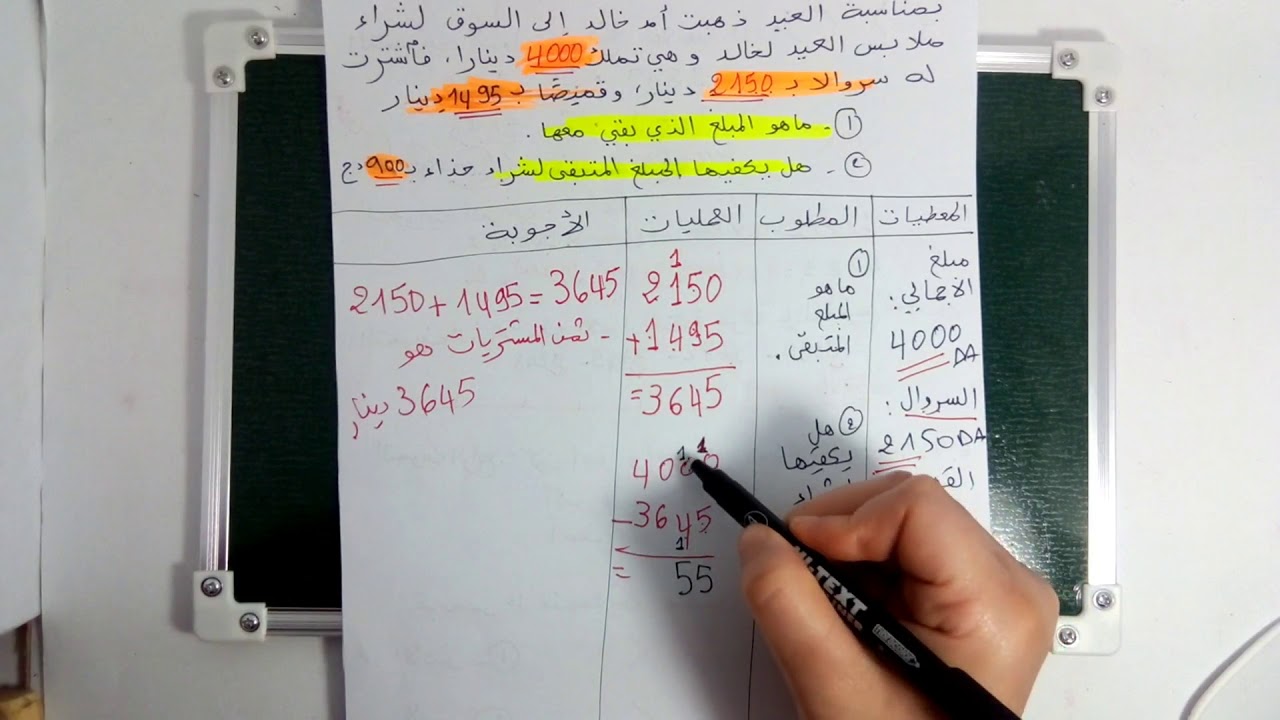 بمناسبة العيد ذهبت أم خالد إلى السوق لشراء
ملابس العيد لخالد و هي تملك 4000 دينارا، فاشترت
له سروالا بـ 2150 دينار، وقميصًا بـ 1495 دينار
① - ماهو المبلغ الذي بقي معها .
② - هل يكفيها المبلغ المتبقى لشراء حذاء بـ 900 دج
المعطيات المطلوب العمليات الأجوبة
مبلغ
الاجمالي:
4000
DA
السروال:
2150DA
①
ماهو
المبلغ
المتبقى.
② هل
يكفيها
1
2150
+1495
=3645
1 1
4000
-3645
1
= 55
2150+1495=3645
- ثمن المشتريات هو
3645 دينار
HI-TEXT